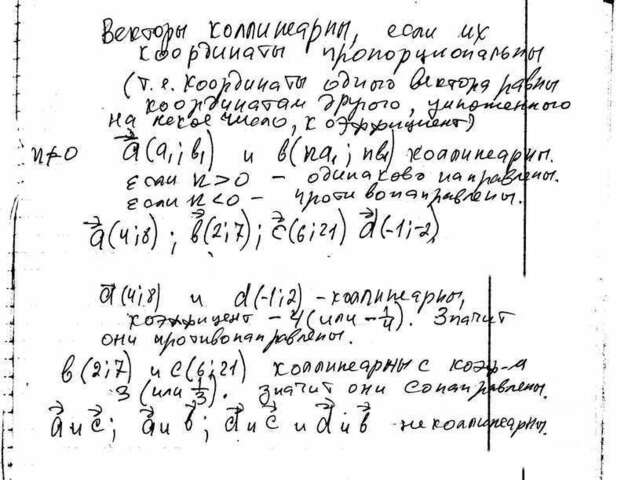 Векторы коллинеарны, если их
координаты пропорциональны
(т.е. координаты одного вектора равны
координатам другого, умноженного
на некое число, коэффициент)
n≠0 a⃗(a₁; b₁) и b(na₁; nb₁) коллинеарны.
если n>0 – одинаково направлены.
если n<0 – противонаправлены.
a⃗(4;8); b⃗(2;7); c⃗(6;21) d⃗(-1;-2)
a⃗(4;8) и d(-1;2) - коллинеарны,
коэффицент - 4 (или -1/4). Значит
они противонаправлены.
b(2;7) и c(6;21) коллинеарны с коэф-м
3 (или 1/3). Значит они сонаправлены.
a⃗ и c⃗; a⃗ и b⃗; d⃗ и c⃗ и d⃗ и b⃗ неколлинеарны.